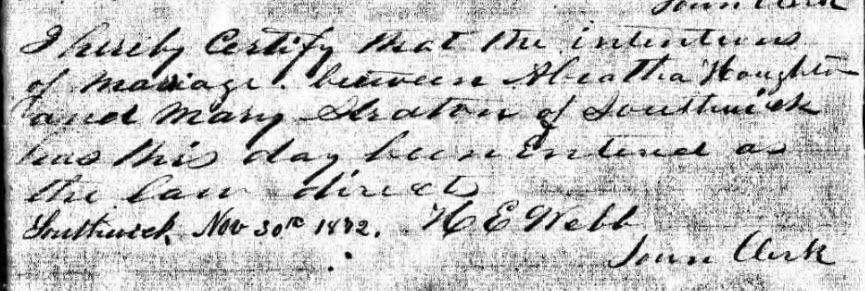 Town Clerk
I hereby Certify that the intentions
of mariage. between Abiatha Houghton
and Mary Straton of Southwick
has this day been entered as
the law directs
Southwick Nov 30th 1872. H E Webb
Town Clerk